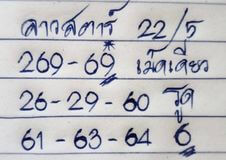 ลาวสตาร์ 22/5
269-69 เม็ดเดียว
26-29-60 รูด
61-63-64 6